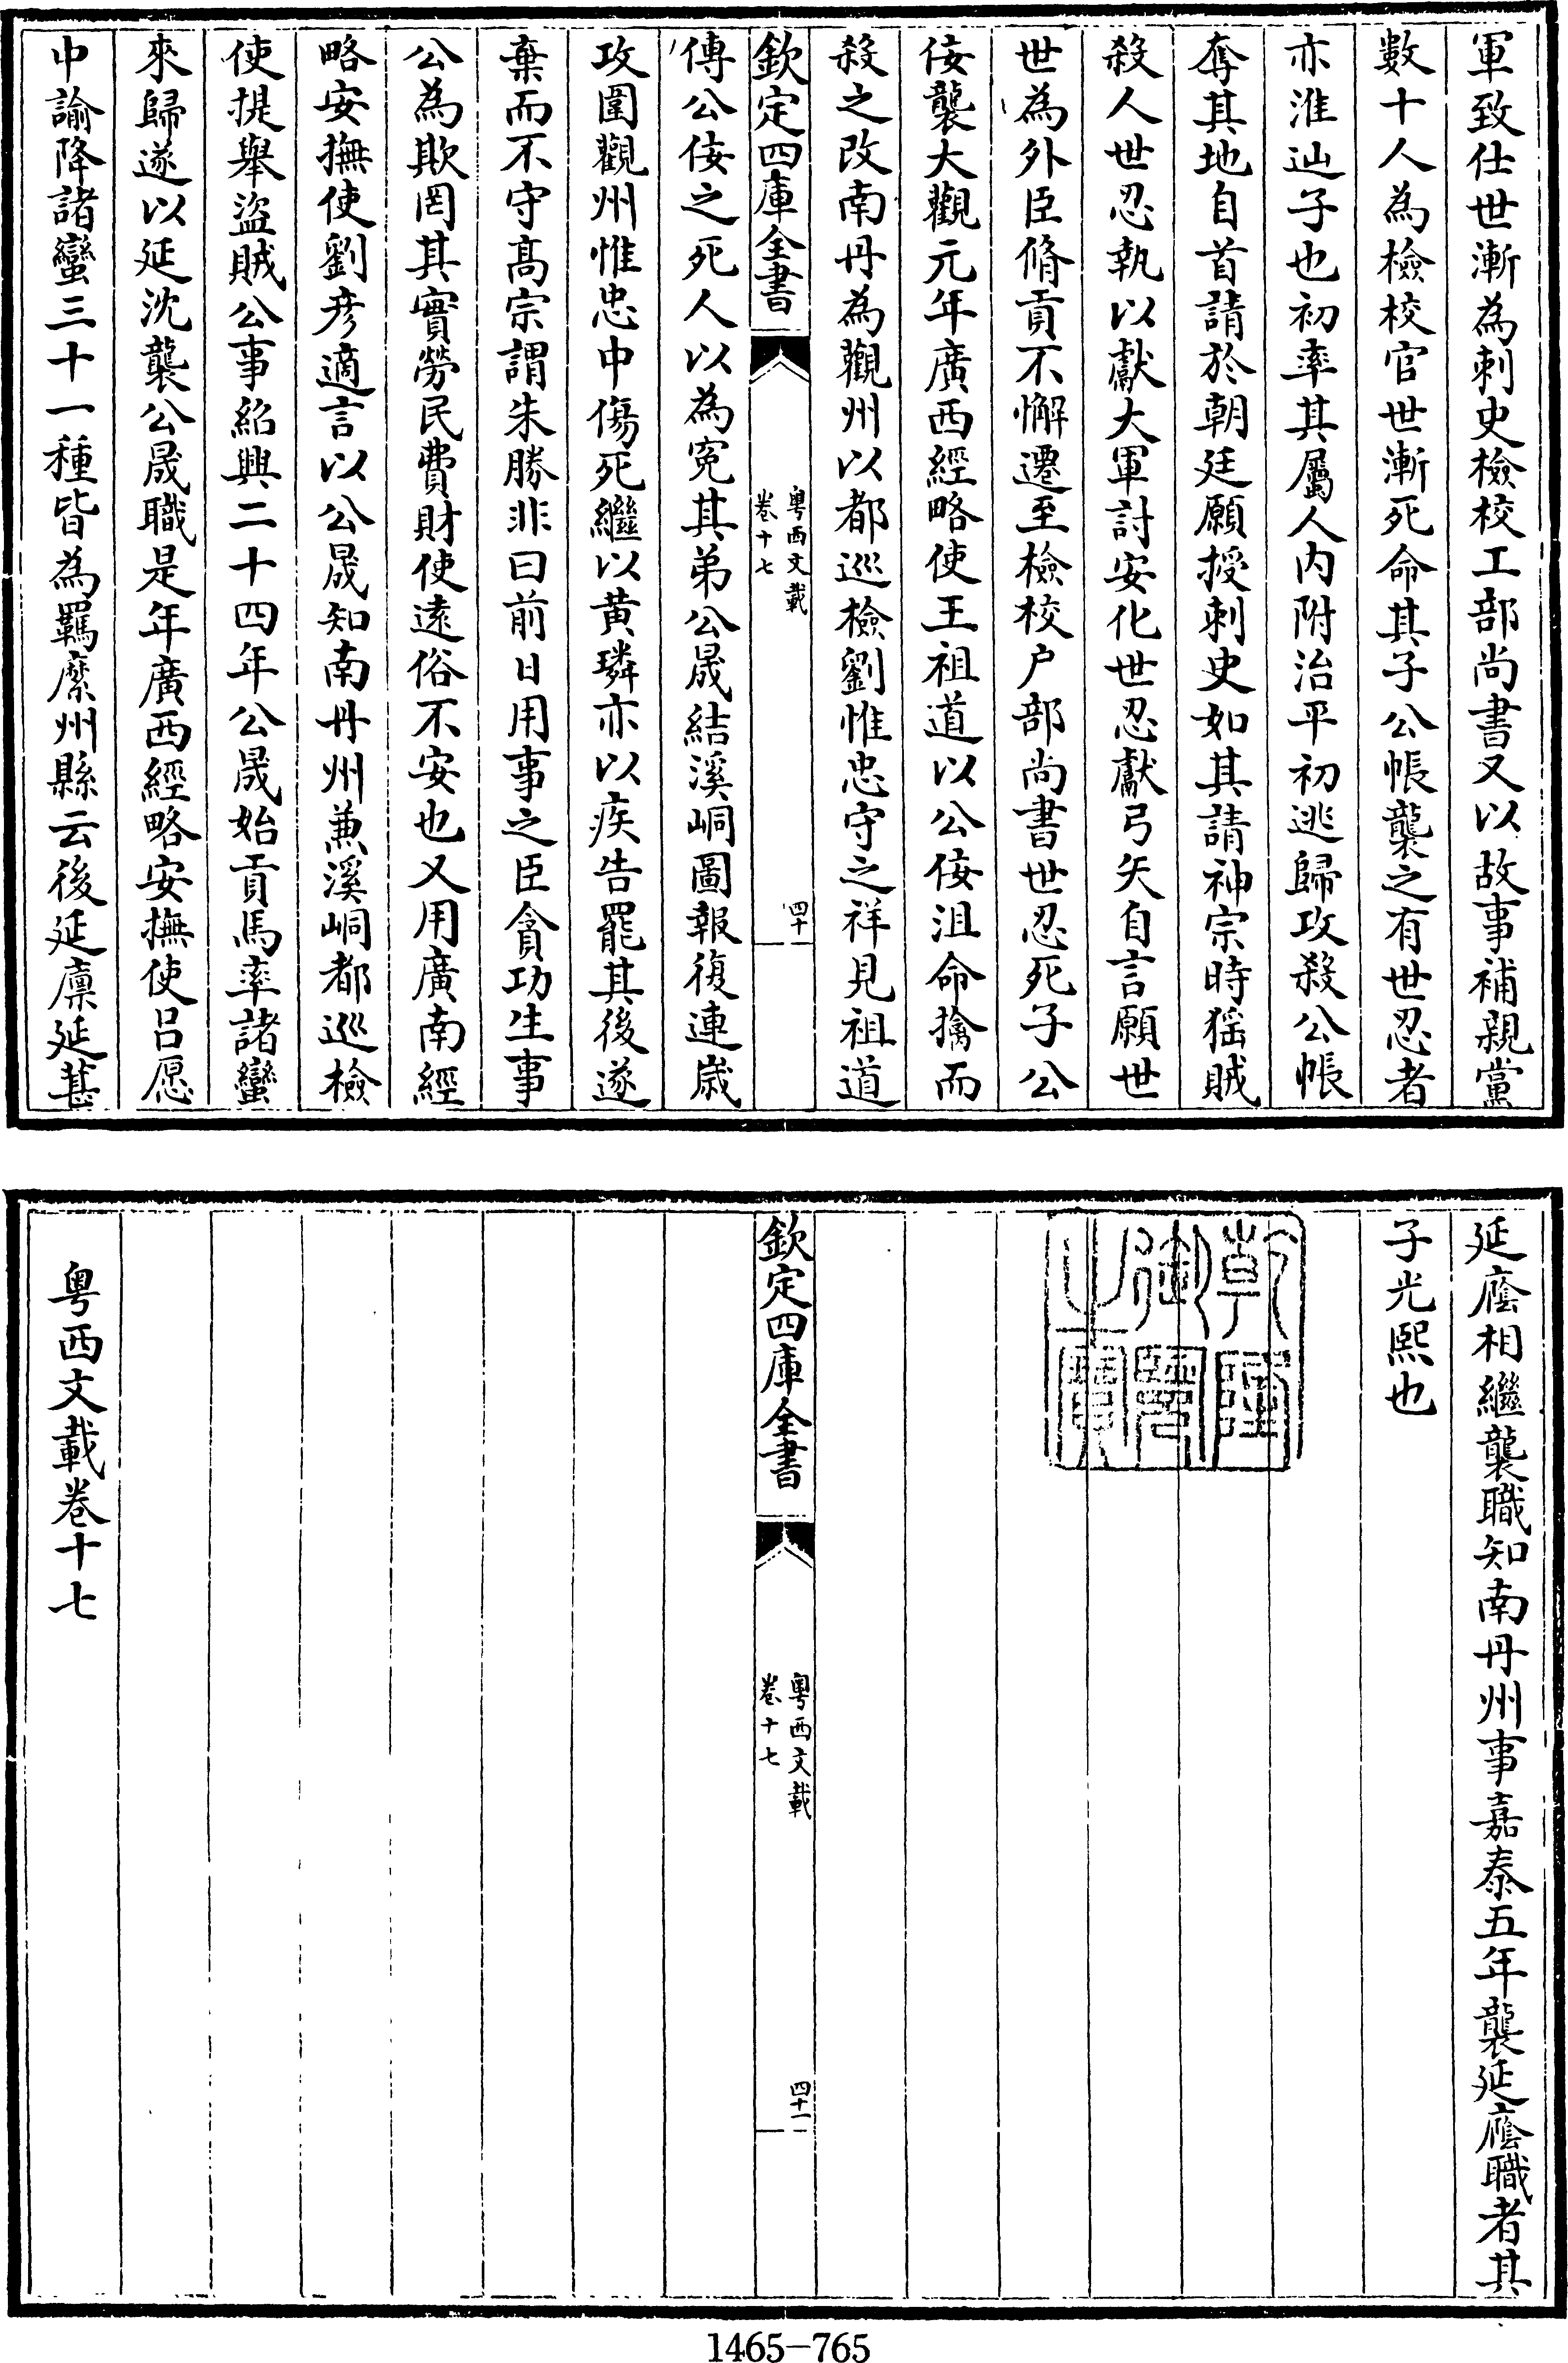 軍致仕世漸為刺史檢校工部尚書又以故事補親黨
數十人為檢校官世漸死命其子公帳襲之有世忍者
亦淮辿子也初率其屬人內附治平初逃歸攻殺公帳
奪其地自首請於朝廷願授刺史如其請神宗時猺賊
殺人世忍執以獻大軍討安化世忍獻弓矢自言願世
世為外臣脩貢不懈遷至檢校户部尚書世忍死子公
佞襲大觀元年廣西經略使王祖道以公佞沮命擒而
殺之改南丹為觀州以都巡檢劉惟忠守之祥見祖道
欽定四庫全書
粤西文載
卷十七
四十
傳公佞之死人以為寃其弟公晟結溪峒圖報復連歲
攻圍觀州惟忠中傷死繼以黄璘亦以疾告罷其後遂
棄而不守髙宗謂朱勝非曰前日用事之臣貪功生事
公為欺罔其實勞民費財使遠俗不安也又用廣南經
略安撫使劉彦適言以公晟知南丹州兼溪峒都巡檢
使提舉盜賊公事紹興二十四年公晟始貢馬率諸蠻
來歸遂以延沈襲公晟職是年廣西經略安撫使吕愿
中諭降諸蠻三十一種皆為羈縻州縣云後延廪延葚
延廕相繼襲職知南丹州事嘉泰五年襲延廕職者其
子光熙也
乾隆御覽之寶
欽定四庫全書
粤西文載
卷十七
四十一
粤西文載卷十七
1465-765